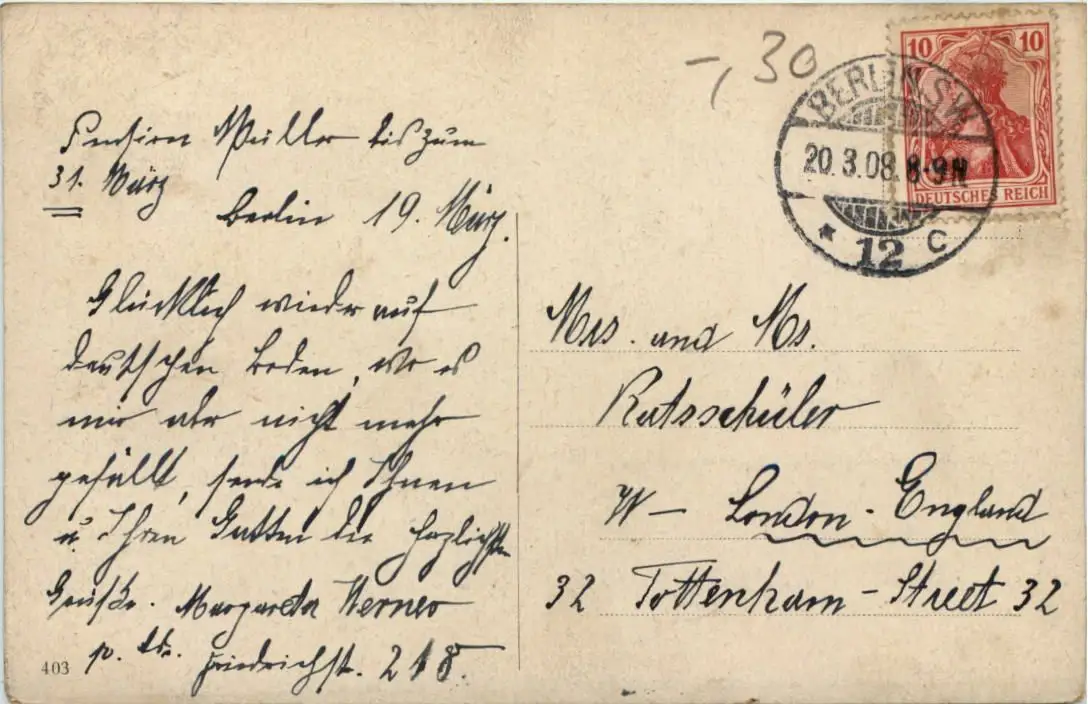 -,30
10 10
DEUTSCHES REICH
BERLIN. S.W.
20.3.08. 8-9 N
* 12 C
Pension Müller bis zum
31. März
Berlin 19. März.
Glücklich wieder auf
deutschen Boden, wo es
mir aber nicht mehr
gefällt, sende ich Ihnen
u. Ihren Gatten die herzlichsten
Grüße. Margareta Werner
p. Adr. Friedrichst. 218.
403
Mrs. and Ms.
Ratsschüler
W – London - England
32 Tottenham - Street 32